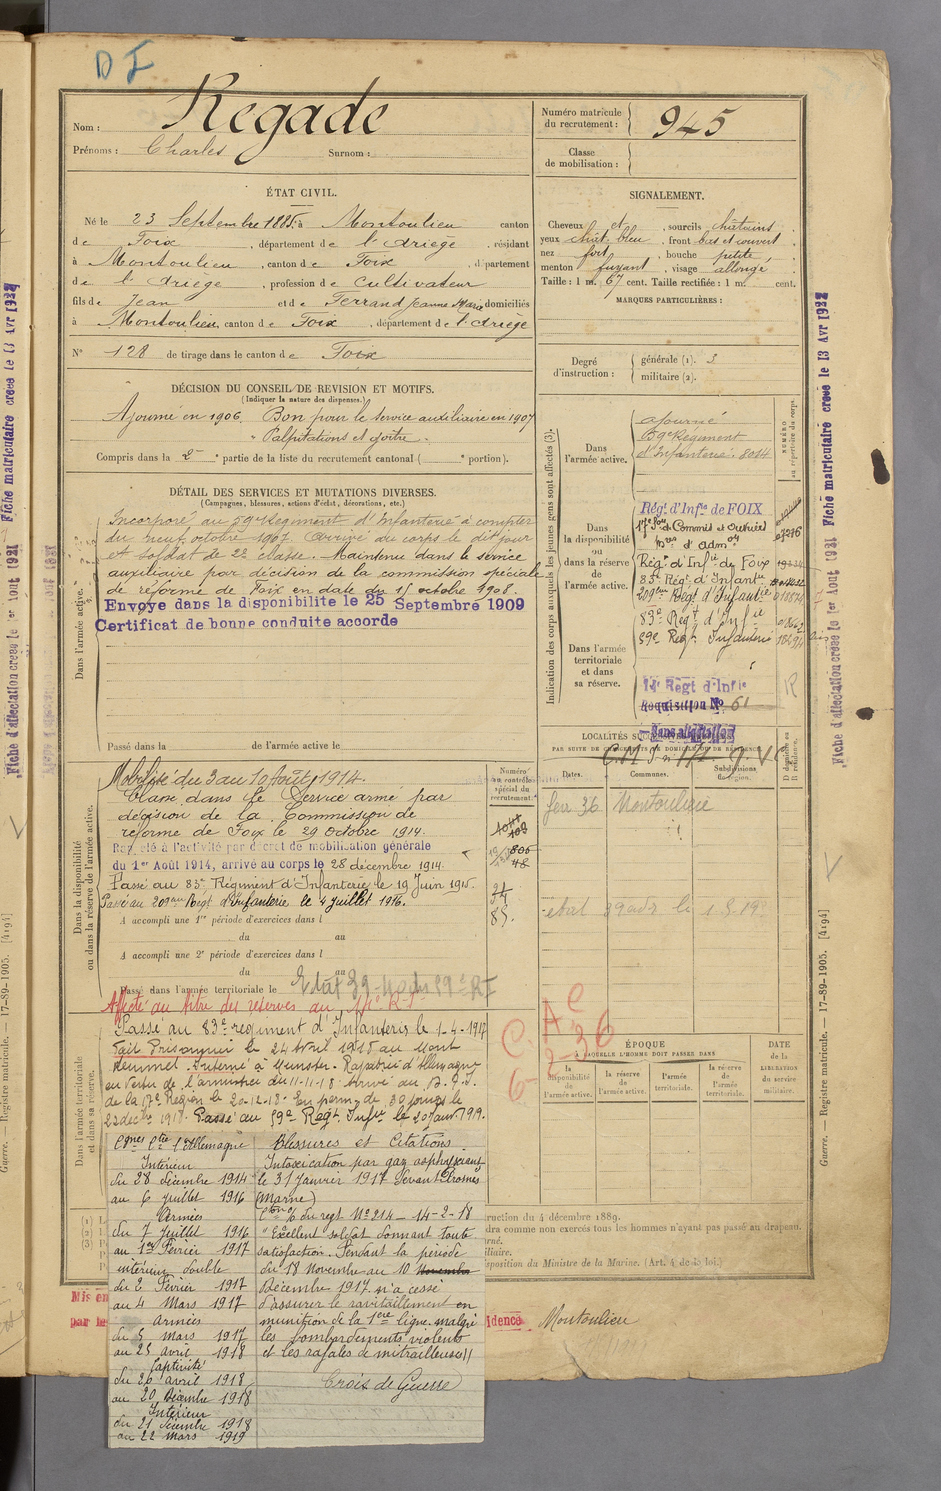 D I
Nom : Regade
Prénoms : Charles Surnom :
Numéro matricule
du recrutement : 945
Classe
de mobilisation :
ÉTAT CIVIL.
Né le 23 Septembre 1885, à Montoulieu canton
de Foix, département de l'Ariège, résidant
à Montoulieu, canton de Foix, département
de l'Ariège, profession de Cultivateur
fils de Jean et de Ferrand Jeanne Marie domiciliés
à Montoulieu, canton de Foix, département de l'Ariège
N° 128 de tirage dans le canton de Foix
SIGNALEMENT.
Cheveux et, sourcils châtains,
yeux chât. bleu, front bas et couvert,
nez fort, bouche petite,
menton fuyant, visage allongé
Taille : 1 m. 67 cent. Taille rectifiée : 1 m. cent.
MARQUES PARTICULIÈRES :
Degré
d'instruction :
générale (1). 3
militaire (2).
DÉCISION DU CONSEIL DE REVISION ET MOTIFS.
(Indiquer la nature des dispenses.)
Ajourné en 1906. Bon pour le service auxiliaire en 1907
Palpitations et goitre.
Compris dans la 2e partie de la liste du recrutement cantonal ( e portion).
DÉTAIL DES SERVICES ET MUTATIONS DIVERSES.
(Campagnes, blessures, actions d'éclat, décorations, etc.)
Dans l'armée active.
Incorporé au 59e Régiment d'Infanterie à compter
du neuf octobre 1907 arrivé au corps le dit jour
et soldat de 2e classe. Maintenu dans le service
auxiliaire par décision de la commission spéciale
de réforme de Foix en date du 15 octobre 1908.
Envoyé dans la disponibilité le 25 Septembre 1909
Certificat de bonne conduite accordé
Passé dans la de l'armée active le
Indication des corps auxquels les jeunes gens sont affectés (3).
NUMÉRO
au répertoire du corps.
Dans
l'armée active.
ajourné
59e Régiment
d'Infanterie. 8014
Dans
la disponibilité
ou
dans la réserve
de
l'armée active.
Régt d'Infie de FOIX
17e Son de Commis et Ouvriers
Régt d'Infie de Foix
83e Régt d'Infantie
209e Régt d'Infantie
83e Régt d'Infie
59e Régt Infanterie
Dans l'armée
territoriale
et dans
sa réserve.
14e Régt d'Infie
Réquisition N° 61
Sans affectation
Dans la disponibilité
ou dans la réserve de l'armée active.
Mobilisé du 3 au 10 Août 1914.
Classé dans le Service armé par
décision de la Commission de
réforme de Foix le 29 octobre 1914.
Rappelé à l'activité par décret de mobilisation générale
du 1er Août 1914, arrivé au corps le 28 décembre 1914.
Passé au 83e Régiment d'Infanterie le 19 Juin 1915.
Passé au 209e Régt d'Infanterie le 4 juillet 1916.
A accompli une 1re période d'exercices dans l
du au
A accompli une 2e période d'exercices dans l
du au
Passé dans l'armée territoriale le
Affecté au titre des réserves au
Numéro
au contrôle
spécial du
recrutement.
PAR SUITE DE CHANGEMENTS DE DOMICILE OU DE RÉSIDENCE.
Dates. Communes. Subdivisions
de région.
D domicile ou
R résidence.
fév 36 Montoulieu
C. A C
6-2-36
Dans l'armée territoriale
et dans sa réserve.
Passé au 83e régiment d'Infanterie le 1-4-1917
Fait Prisonnier le 24 Avril 1918 au Mont
Kemmel. Interné à Munster. Rapatrié d'Allemagne
en vertu de l'armistice du 11-11-18. Arrivé au
de la 17e Région le 20-12-18. En perm. de 30 jours le
22 décbre 1918. Passé au 59e Régt Infie le 20 Janv. 1919.
ÉPOQUE
À LAQUELLE L'HOMME DOIT PASSER DANS
DATE
de la
LIBÉRATION
du service
militaire.
la
disponibilité
de
l'armée active.
la réserve
de
l'armée active.
l'armée
territoriale.
la réserve
de
l'armée
territoriale.
Cgnes Ctre l'Allemagne
Intérieur
du 28 décembre 1914
au 6 juillet 1916
Armées
du 7 Juillet 1916
au 1er Février 1917
intérieur double
du 2 Février 1917
au 4 Mars 1917
Armées
du 5 mars 1917
au 25 avril 1918
Captivité
du 26 avril 1918
au 20 Décembre 1918
Intérieur
du 21 décembre 1918
au 22 mars 1919
Blessures et Citations
Intoxication par gaz asphyxiant
le 31 Janvier 1917 devant Prosnes
(Marne)
Cton % du regt N° 214 — 14-2-18
"Excellent soldat donnant toute
satisfaction. Pendant la période
du 18 Novembre au 10 Novembre
Décembre 1917, n'a cessé
d'assurer le ravitaillement en
munition de la 1ère ligne malgré
les bombardements violents
et les rafales de mitrailleuses"
Croix de Guerre
ruction du 4 décembre 1889.
dra comme non exercés tous les hommes n'ayant pas passé au drapeau.
rné.
iliaire.
sposition du Ministre de la Marine. (Art. 4 de la loi.)
Mis en
par le
idence Montoulieu
Fiche matriculaire créée le 13 Avr 1922
Fiche d'affectation créée le 1er Août 1921
Guerre. — Registre matricule. — 17-89-1905. [4194]